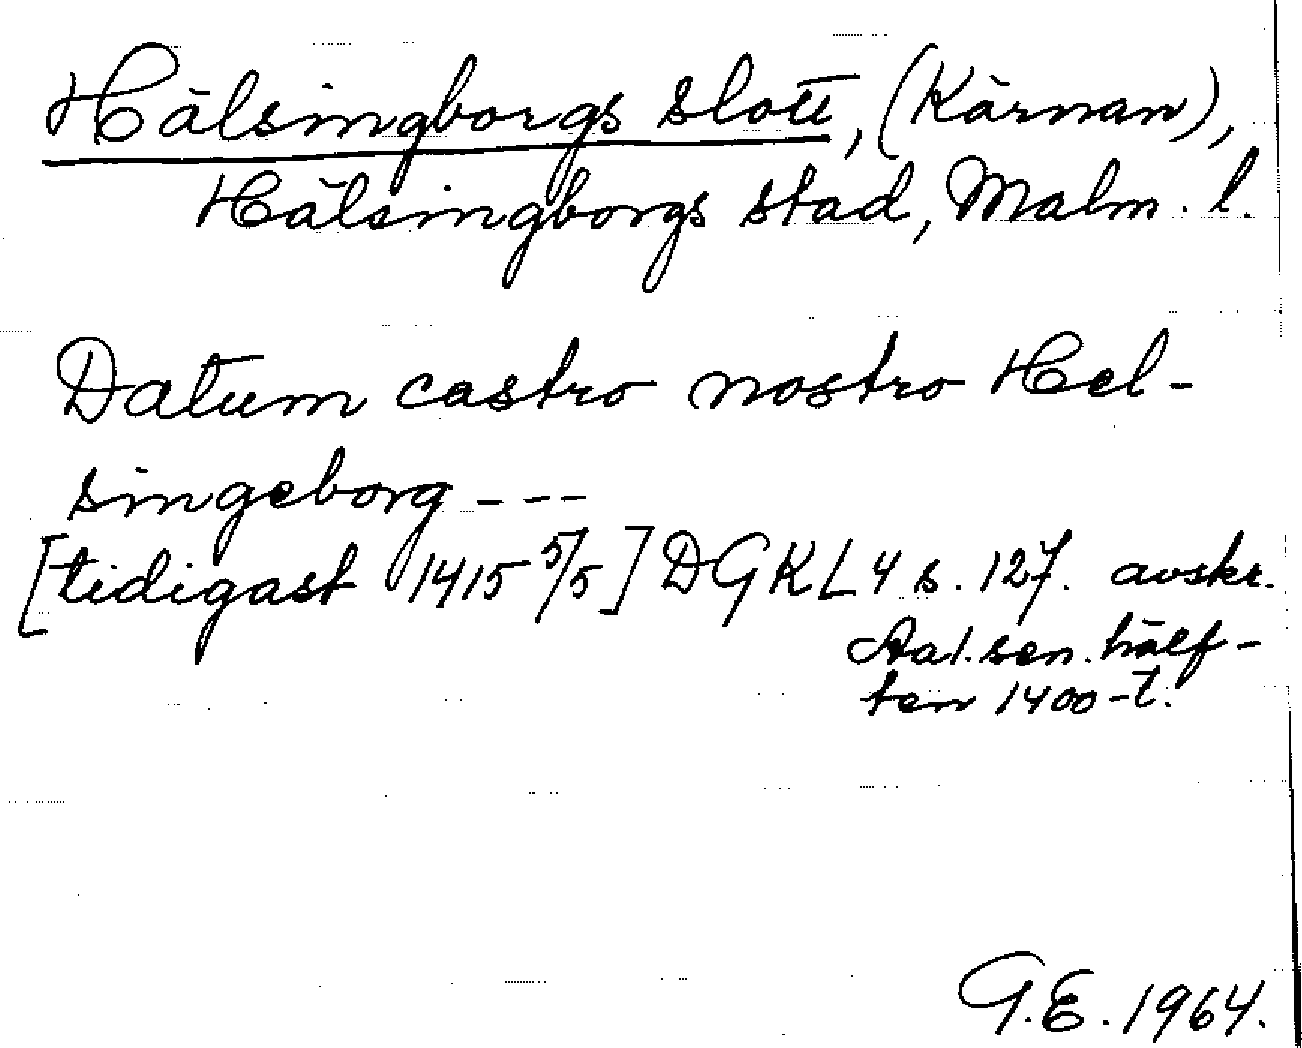 Hälsingborgs slott, (Kärnan),
Hälsingborgs stad, Malm. l.
Datum castro nostro Hel-
singeborg - - -
[tidigast 1415 5/5] DGKL4 s. 127. avskr.
Aal. sen. hälf-
ten 1400-t.
G.E. 1964.